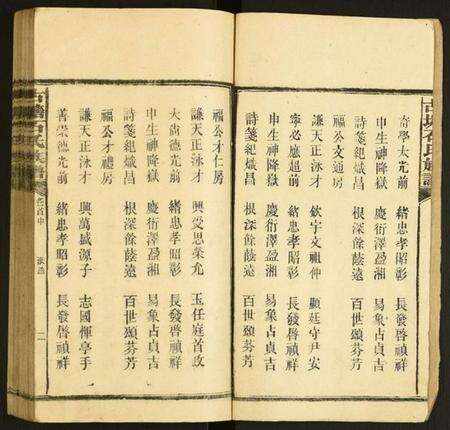 奇學大光前　緒忠孝昭彰　長發啓禎祥
申生神降嶽　慶衍澤盈湘　易象占貞吉
詩箋紀熾昌　根深餘蔭遠　百世頌芬芳
福公文通房
謙天正泳才　欽宇文祖仲　顯廷守尹安
寧必應超前　緒忠孝昭彰　長發啓禎祥
申生神降嶽　慶衍澤盈湘　易象占貞吉
詩箋紀熾昌　根深餘蔭遠　百世頌芬芳
福公才仁房
謙天正泳才　興受思業允　玉任庭首政
大尙德光前　緒忠孝昭彰　長發啓禎祥
申生神降嶽　慶衍澤盈湘　易象占貞吉
詩箋紀熾昌　根深餘蔭遠　百世頌芬芳
福公才　房
謙天正泳才　興萬盛源子　志國惲亭手
善崇德光前　緒忠孝昭彰　長發啓禎祥
石氏族譜　卷首中　派語　二